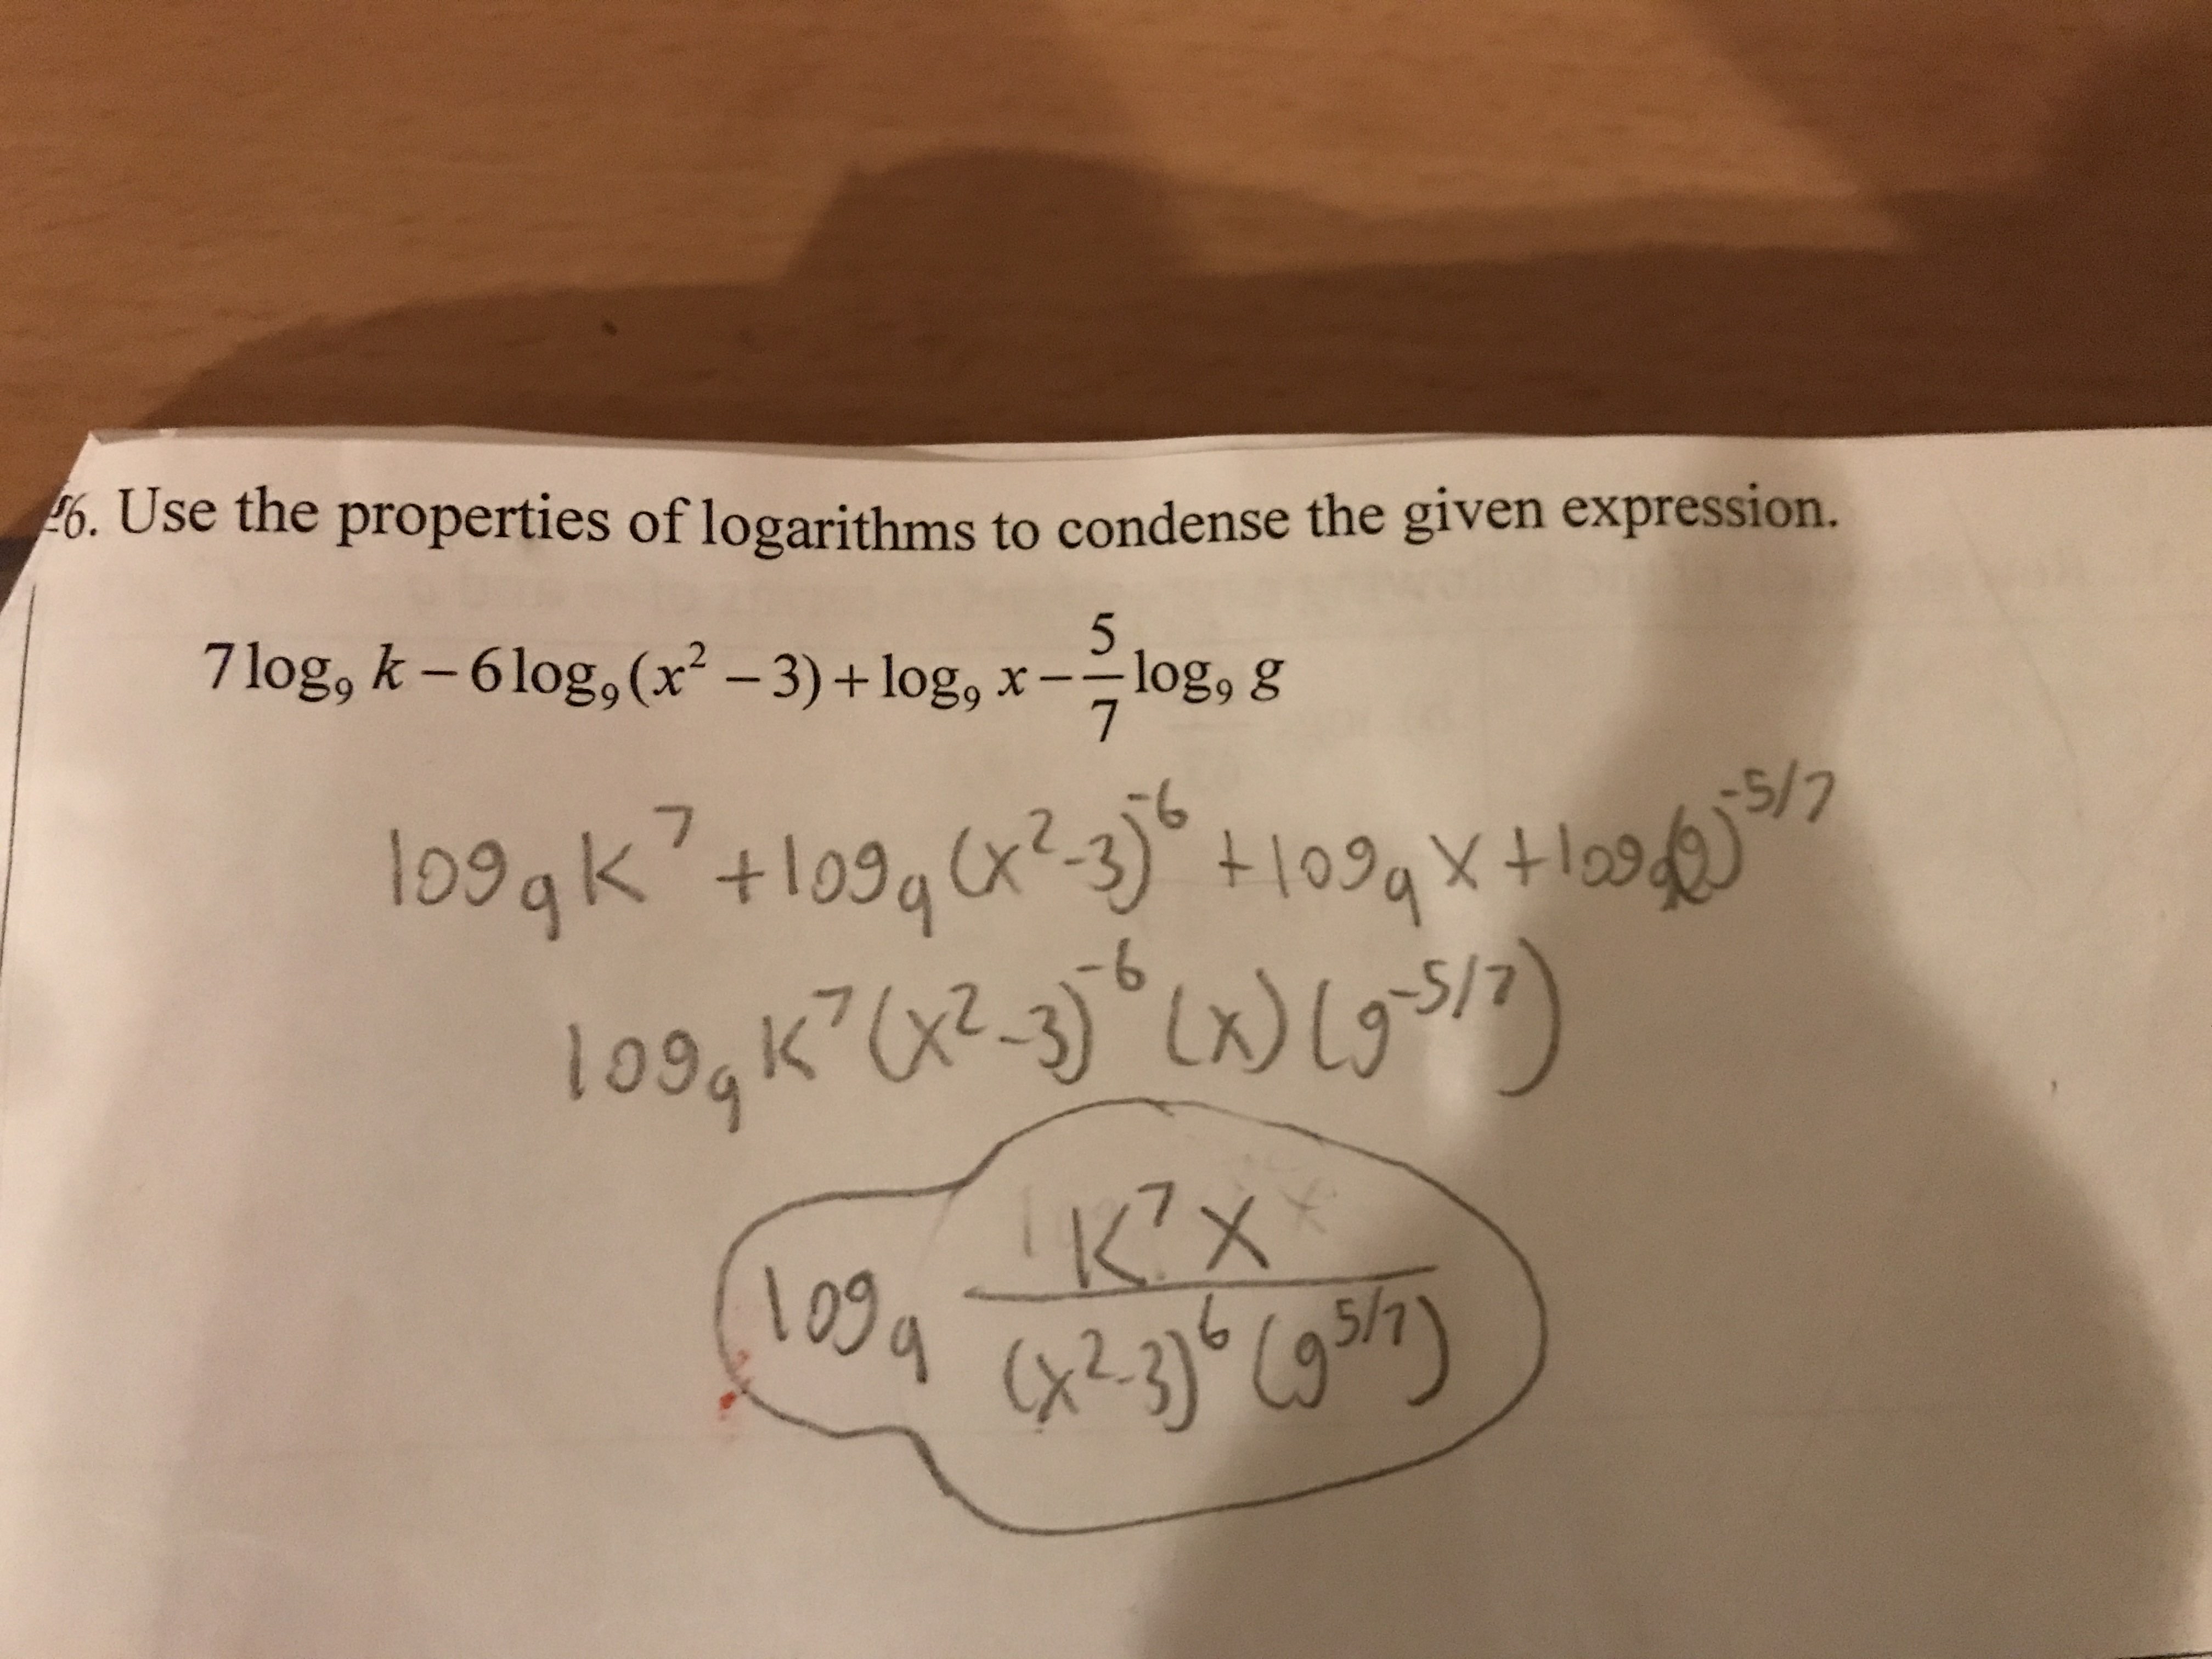 26. Use the properties of logarithms to condense the given expression.
7 log₉ k – 6 log₉ (x² – 3) + log₉ x – 5/7 log₉ g
log₉ K⁷ + log₉ (x²-3)⁻⁶ + log₉ x + log₉(g)^-5/7
log₉ K⁷ (x²-3)⁻⁶ (x) (g^-5/7)
log₉ K⁷ x / (x²-3)⁶ (g^5/7)